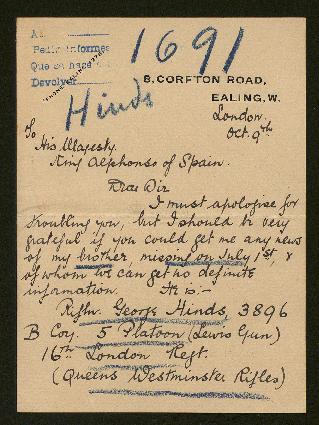 1691
Pedir informes
Que se haga
Devolver
Hinds
8, CORFTON ROAD,
EALING, W.
London
Oct. 9th
To
His Majesty
King Alphonso of Spain.
Dear Sir
I must apologise for
troubling you, but I should be very
grateful if you could get me any news
of my brother, missing on July 1st &
of whom we can get no definite
information. He is:-
Rifln. George Hinds, 3896
B Coy. 5 Platoon (Lewis Gun)
16th London Regt.
(Queens Westminster Rifles)